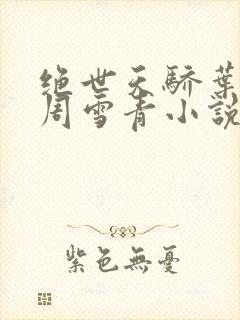 绝世天骄葉
周雪青小説
紫色無憂